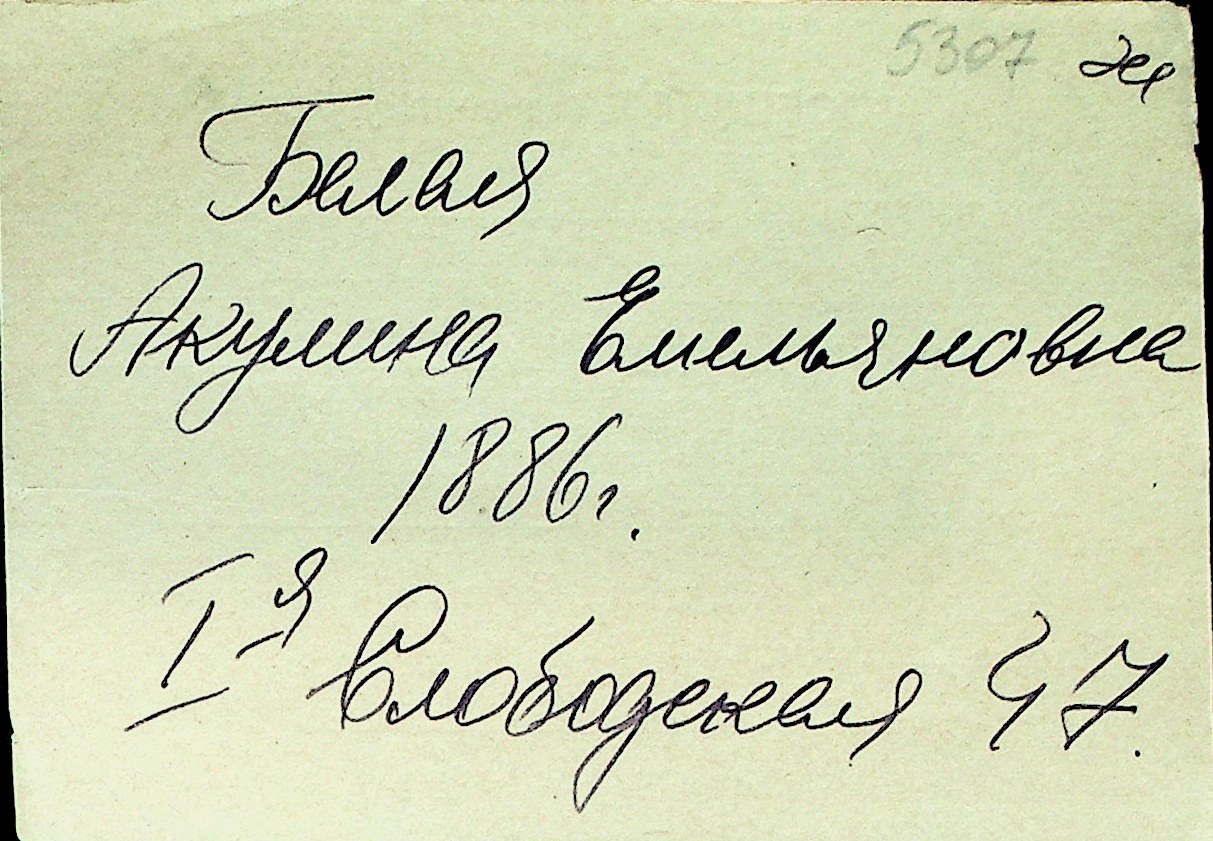 5307 ж
Белая
Акулина Емельяновна
1886г.
I я Слободская 47.